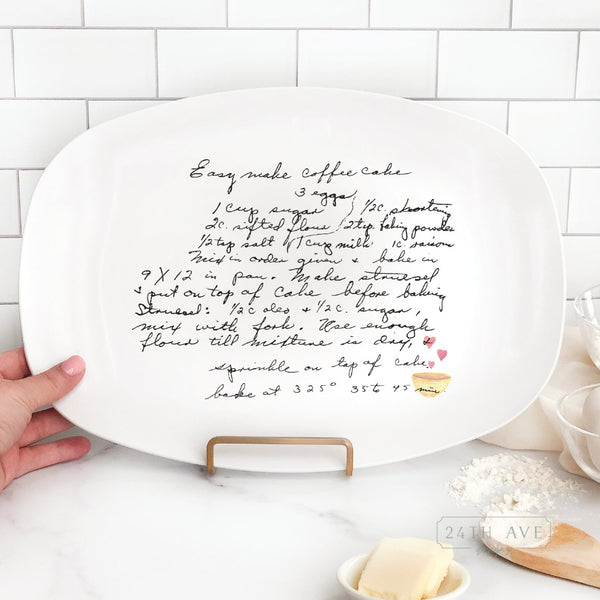 Easy make coffee cake
3 eggs
1 cup sugar 1/2c. shortening
2c. sifted flour 2tsp. baking powder
1/2 tsp salt 1 cup milk 1c raisins
Mix in order given & bake in
9 X 12 in pan. Make struesel
& put on top of cake before baking
Struesel: 1/2c oleo & 1/2c. sugar,
mix with fork. Use enough
flour till mixture is dry, &
sprinkle on top of cake
bake at 325° 35 to 45 min.
24TH AVE